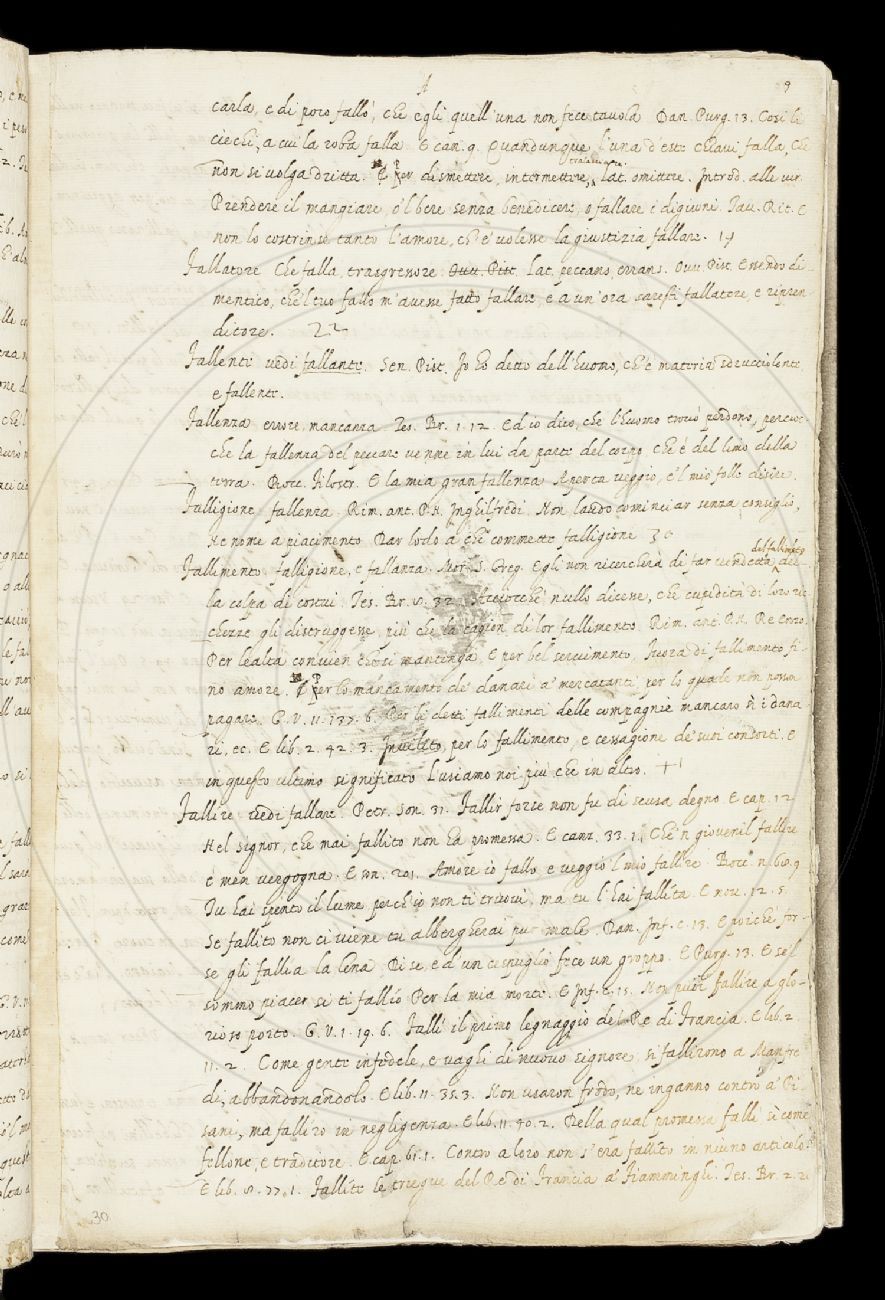 A 9
carla, e di poco fallò, che egli quell'una non fece tavola Dan. Purg. 13. Così li
ciechi, a cui la roba falla E can. 9. Quandunque l'una d'este chiavi falla, che
non si volga dritta. Per dismettere, intermettere, tralasciare. lat. omittere. Introd. alle vir.
Prendere il mangiare, e 'l bere senza benedicere, o fallare i digiuni. Tav. Rit. E
non lo costrinse tanto l'amore, ch'e' volesse la giustizia fallare. 14
Fallatore Che falla, trasgressore. Ovv. Pist. Lat. peccans, errans. Ovv. Pist. Essendo di-
mentico, che 'l tuo fallo m'avesse fatto fallare, e a un'ora saresti fallatore, e ripren
ditore. 22
Fallenti vedi fallante. Sen. Pist. Io ho detto dell'huomo, ch'è materia sdrucciolente,
e fallente.
Fallenza errore, mancanza Tes. Br. 1. 12. Ed io dico, che l'huomo trovò perdono, percioc-
che la fallenza del peccare venne in lui da parte del corpo, che è del limo della
terra. Bocc. Filostr. E la mia gran fallenza Aperta veggio, e 'l mio folle disire.
Falligione fallenza. Rim. ant. P.N. Inghilfredi. Non laudo cominciar senza consiglio,
Nè nome a piacimento Dar lodo a chi commette falligione 30
Fallimento falligione, e fallanza. Mor. S. Greg. Egli non ricercherà di far vendetta del fallimento, del-
la colpa di costui. Tes. Br. 8. 32. Acciocchè nullo dicesse, che cupidità di loro ric
chezze gli distruggesse, più che la cagion di lor fallimento Rim. ant. P.N. Re Enzo.
Per lealtà convien che si mantenga, E per bel servimento, Fuora di fallimento fi-
no amore. Per lo mancamento de' danari a' mercatanti, per lo quale non posson
pagare. G. V. 11. 137. 6. Per li detti fallimenti delle compagnie mancaro sì i dana
ri, ec. E lib. 2. 42. 3. per lo fallimento, e cessagione de' suoi consorti. E
in questo ultimo significato l'usiamo noi più che in altro.
Fallire vedi fallare. Petr. Son. 31. Fallir forse non fu di scusa degno. E cap. 12
Nel signor, che mai fallito non ha promessa. E canz. 33. 1. Che 'n giovenil fallire
è men vergogna. E son. 201. Amore io fallo, e veggio 'l mio fallire. Bocc. n. 60. 9
Tu hai spento il lume perch'io non ti truovi, ma tu l'hai fallita. E nov. 12. 5.
Se fallito non ci viene tu albergherai pur male. Dan. Inf. c. 13. E poichè for-
se gli fallia la lena, Di se, e d'un cespuglio fece un groppo. E Purg. 13. E se 'l
sommo piacer sì ti fallìo Per la mia morte. E Inf. c. 15. Non puoi fallire a glo-
rioso porto. G. V. 1. 19. 6. Fallì il primo legnaggio del Re di Francia. E lib. 2.
11. 2. Come gente infedele, e vaghi di nuovo signore, si fallirono a Manfre
di, abbandonandolo. E lib. 11. 35. 3. Non usaron frodo, ne inganno contro a' Pi-
sani, ma fallìro in negligenza. E lib. 11. 40. 2. Della qual promessa fallì sì come
fellone, e traditore. E cap. 61. 1. Contro a loro non s'era fallito in niuno articolo.
E lib. 8. 77. 1. Fallite le triegue del Re di Francia a' Fiamminghi. Tes. Br. 2. 21
30